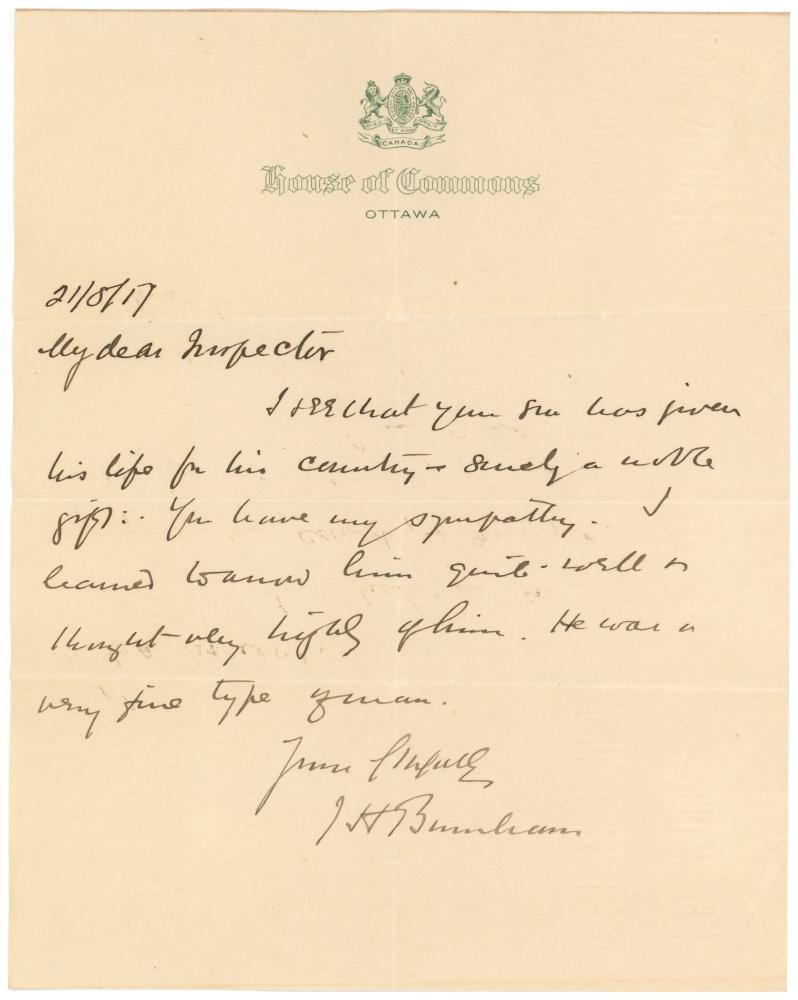 DIEU ET MON DROIT
CANADA
House of Commons
OTTAWA
21/8/17
My dear Inspector
I see that your son has given
his life for his country - surely a noble
gift:. You have my sympathy. I
learned to know him quite well &
thought very highly of him. He was a
very fine type of man.
Yours
J H Burnham